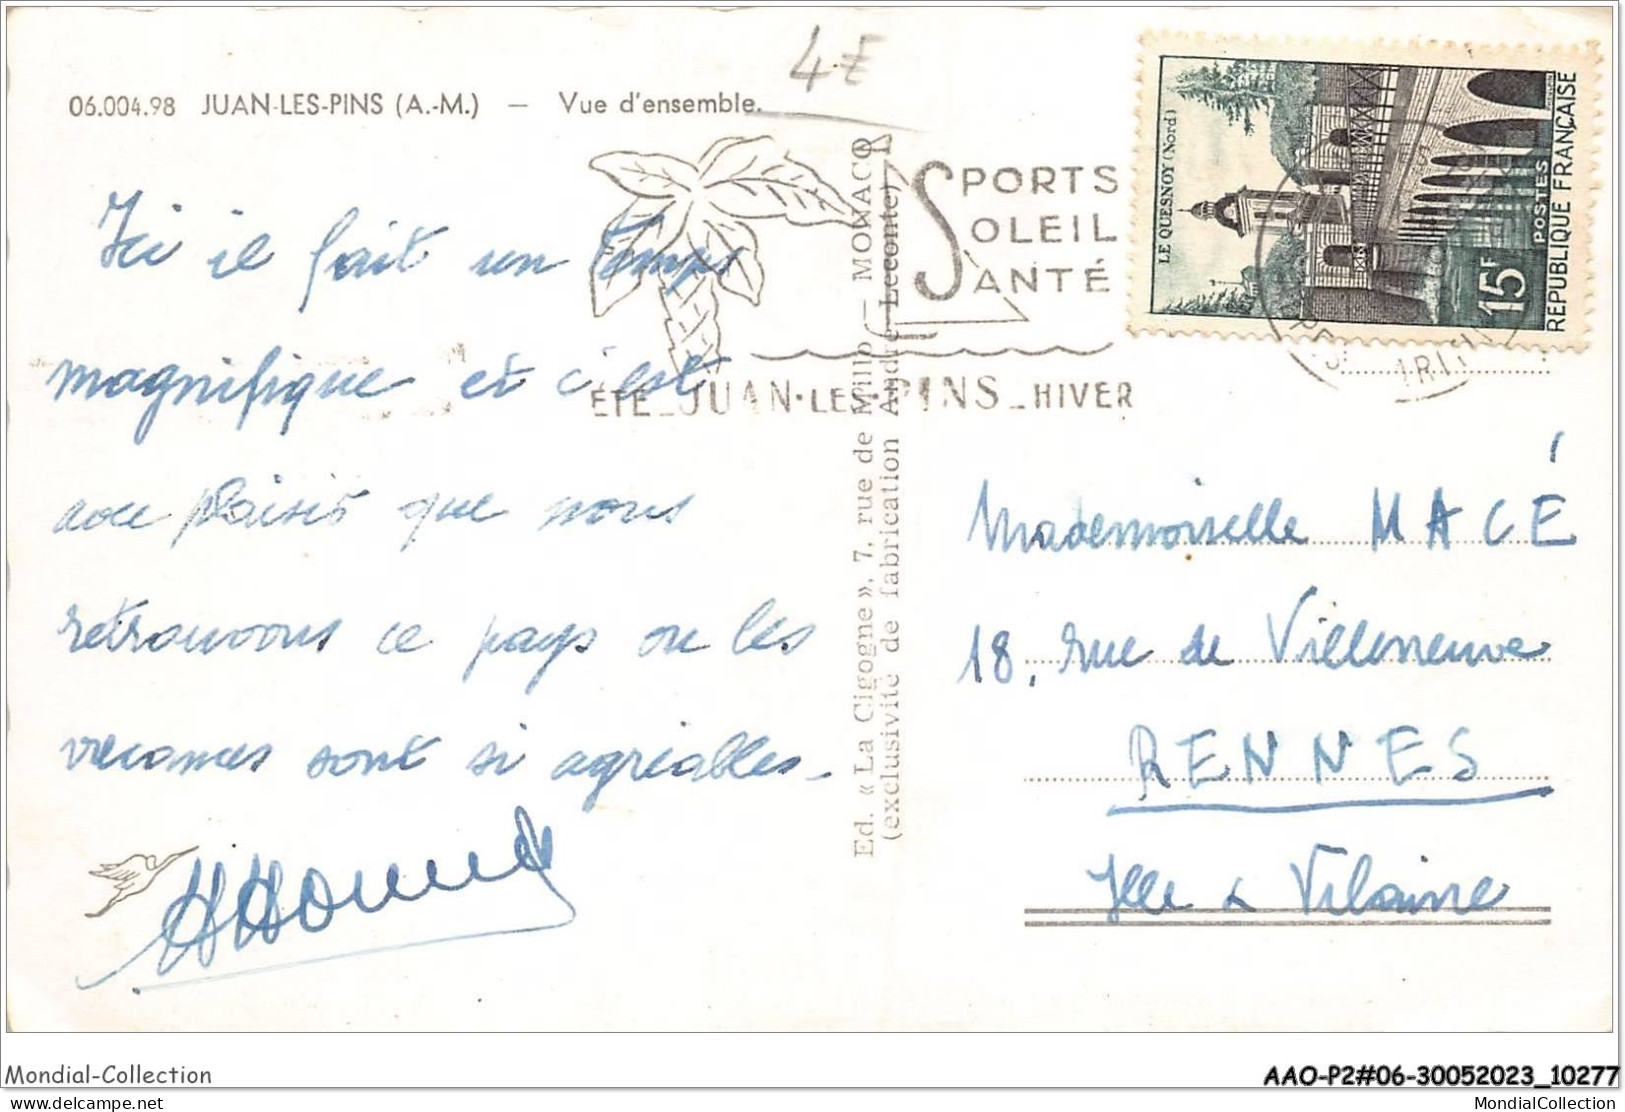 4€
06.004.98 JUAN-LES-PINS (A.-M.) — Vue d'ensemble.
Ici il fait un temps
magnifique et c'est
avec plaisir que nous
retrouvons ce pays ou les
vacances sont si agréables.
Ed. « La Cigogne », 7, rue de Millo — MONACO
(exclusivité de fabrication André Leconte)
SPORTS
SOLEIL
SANTÉ
ÉTÉ _ JUAN·LES·PINS _ HIVER
LE QUESNOY (Nord)
15F
POSTES
REPUBLIQUE FRANÇAISE
Mademoiselle MACÉ
18, rue de Villeneuve
RENNES
Ille & Vilaine
Mondial-Collection
AAO-P2#06-30052023_10277
delcampe.net
MondialCollection